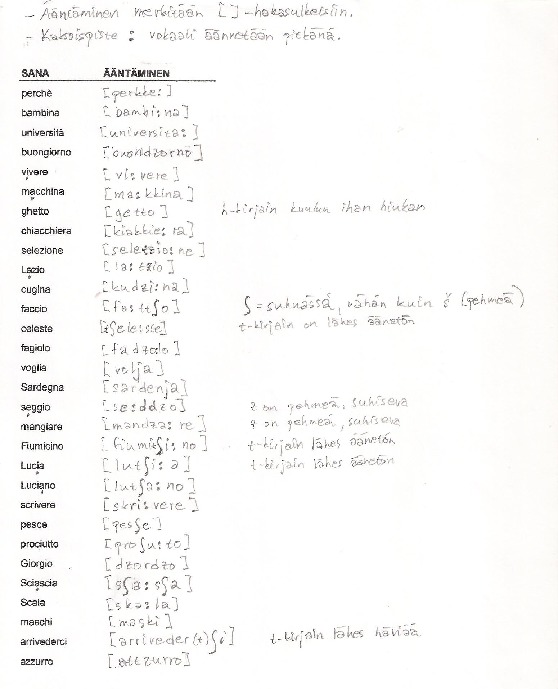 - Ääntäminen merkitään [ ] -hakasulkeisiin.
- Kaksoispiste : vokaali äännetään pitkänä.
SANA ÄÄNTÄMINEN
perchè [perkke:]
bambina [bambi:na]
università [universita:]
buongiorno [buondzorno]
vivere [vi:vere]
macchina [ma:kkina]
ghetto [getto] h-kirjain kuuluu ihan hiukan
chiacchiera [kiakkie:ra]
selezione [seletzio:ne]
Lazio [la:tzio]
cugina [kudzi:na]
faccio [fattʃo] ʃ = suhuässä, vähän kuin š (pehmeä)
celeste t-kirjain on lähes äänetön
fagiolo [fadzolo]
voglia [volja]
Sardegna [sardenja]
seggio [se:ddzo] z on pehmeä, suhiseva
mangiare [mandza:re] z on pehmeä, suhiseva
Fiumicino [fiumiʃi:no] t-kirjain lähes äänetön
Lucia [lutʃi:a] t-kirjain lähes äänetön
Luciano [lutʃa:no]
scrivere [skri:vere]
pesce [pesʃe]
prociutto [proʃu:to]
Giorgio [dzordzo]
Sciascia [sʃa:sʃa]
Scala [ska:la]
maschi [maski]
arrivederci [arriveder(t)ʃi] t-kirjain lähes häviää
azzurro [attzurro]